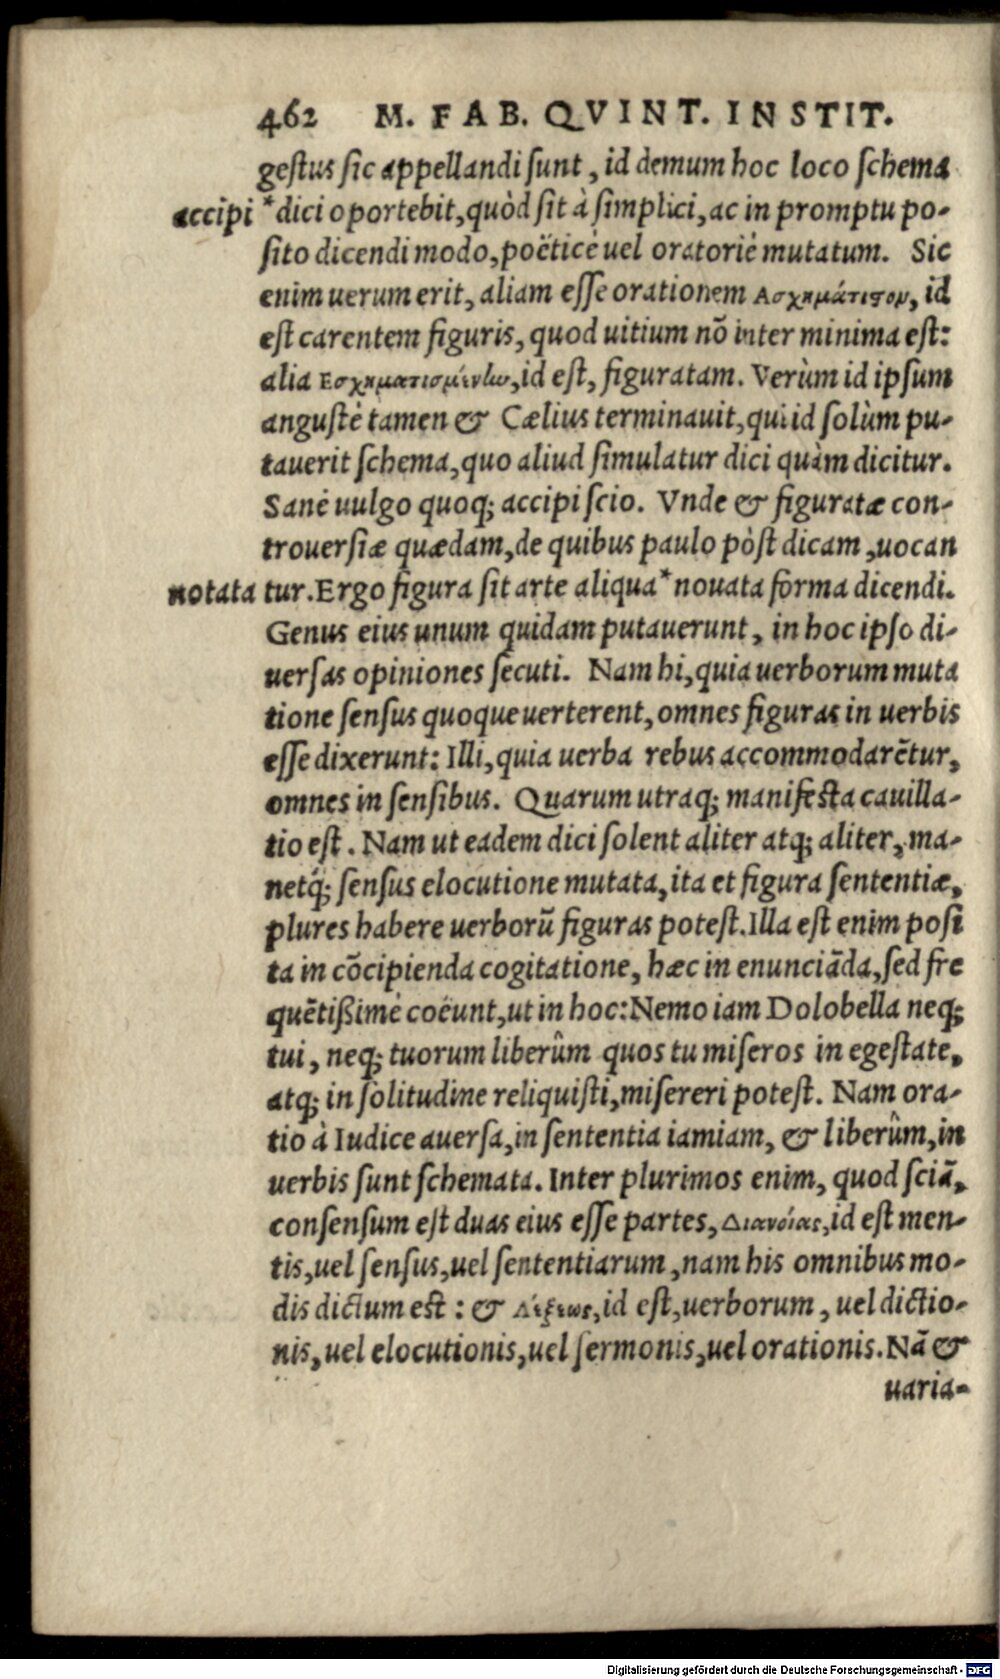 462 M. FAB. QVINT. INSTIT.
gestus sic appellandi sunt, id demum hoc loco schema
accipi *dici oportebit, quòd sit à simplici, ac in promptu po-
sito dicendi modo, poëticè uel oratoriè mutatum. Sic
enim uerum erit, aliam esse orationem Ασχημάτιστον, id
est carentem figuris, quod uitium nõ inter minima est:
alia Εσχηματισμένην, id est, figuratam. Verùm id ipsum
angustè tamen & Cælius terminauit, qui id solùm pu-
tauerit schema, quo aliud simulatur dici quàm dicitur.
Sanè uulgo quoq; accipi scio. Vnde & figuratæ con-
trouersiæ quædam, de quibus paulo pòst dicam, uocan
notata tur. Ergo figura sit arte aliqua *nouata forma dicendi.
Genus eius unum quidam putauerunt, in hoc ipso di-
uersas opiniones secuti. Nam hi, quia uerborum muta
tione sensus quoque uerterent, omnes figuras in uerbis
esse dixerunt: Illi, quia uerba rebus accommodarẽtur,
omnes in sensibus. Quarum utraq; manifesta cauilla-
tio est. Nam ut eadem dici solent aliter atq; aliter, ma-
netq́; sensus elocutione mutata, ita et figura sententiæ,
plures habere uerborũ figuras potest. Illa est enim posi
ta in cõcipienda cogitatione, hæc in enunciãda, sed fre
quẽtißimè coëunt, ut in hoc: Nemo iam Dolobella neq;
tui, neq; tuorum liberûm quos tu miseros in egestate,
atq; in solitudine reliquisti, misereri potest. Nam ora-
tio à Iudice auersa, in sententia iamiam, & liberûm, in
uerbis sunt schemata. Inter plurimos enim, quod sciã,
consensum est duas eius esse partes, Διανοίας, id est men-
tis, uel sensus, uel sententiarum, nam his omnibus mo-
dis dictum est: & Λέξεως, id est, uerborum, uel dictio-
nis, uel elocutionis, uel sermonis, uel orationis. Nã &
uaria-
Digitalisierung gefördert durch die Deutsche Forschungsgemeinschaft - DFG